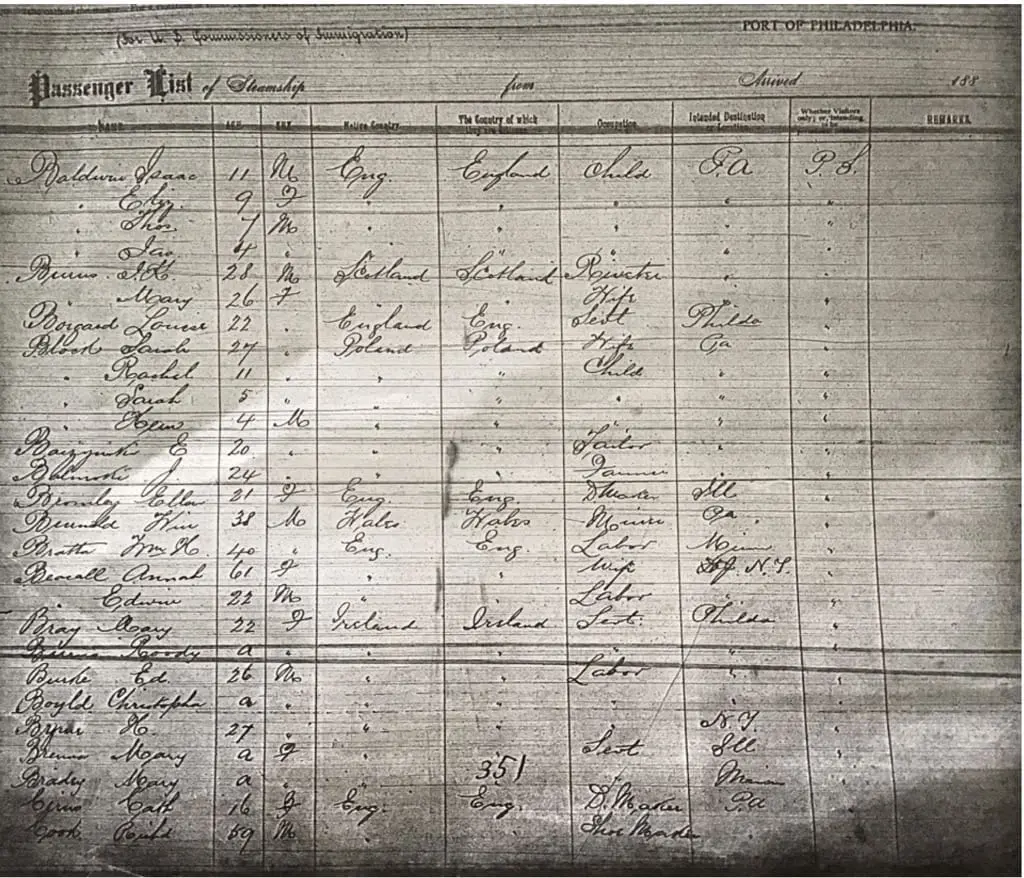 (For U. S. Commissioners of Immigration)
PORT OF PHILADELPHIA.
Passenger List of Steamship from Arrived 188
NAME AGE SEX Native Country The Country of which they are Citizens Occupation Intended Destination or Location Whether Visitors only; or, intending to be REMARKS
Baldwin Isaac 11 M Eng. England Child P.A P. S.
" Eliz 9 F " " " " "
" Thos. 7 M " " " " "
" Jas 4 " " " " " "
Burns J.K. 28 M Scotland Scotland Riveter " "
" Mary 26 F Wife "
Louise 22 " England Eng. Servt Philda "
Block Sarah 27 " Poland Poland Wife Pa "
" Rachel 11 " " " Child " "
" Sarah 5 " " " " " "
" 4 M " " " "
E 20 " " " Tailor " "
J. 24 " " " "
Bromley Ellen 21 F Eng. Eng. D Maker Ill "
Wm 38 M Wales Wales Miner Pa. "
Bratta Wm H. 40 " Eng. Eng. Labor Minn "
Annah 61 F " " Wife N.Y. "
" Edwin 22 M " " Labor " "
Bray Mary 22 F Ireland Ireland Servt. Philda "
Roody a " " " "
Burke Ed. 26 M " " Labor " "
Boyld Christopher a " " " " "
H. 27 " " " N.Y. "
Mary a F " Servt Ill "
Brady Mary a " " 351 "
Cath 16 F Eng. Eng. D. Maker P.A "
Cook 59 M Shoe Maker